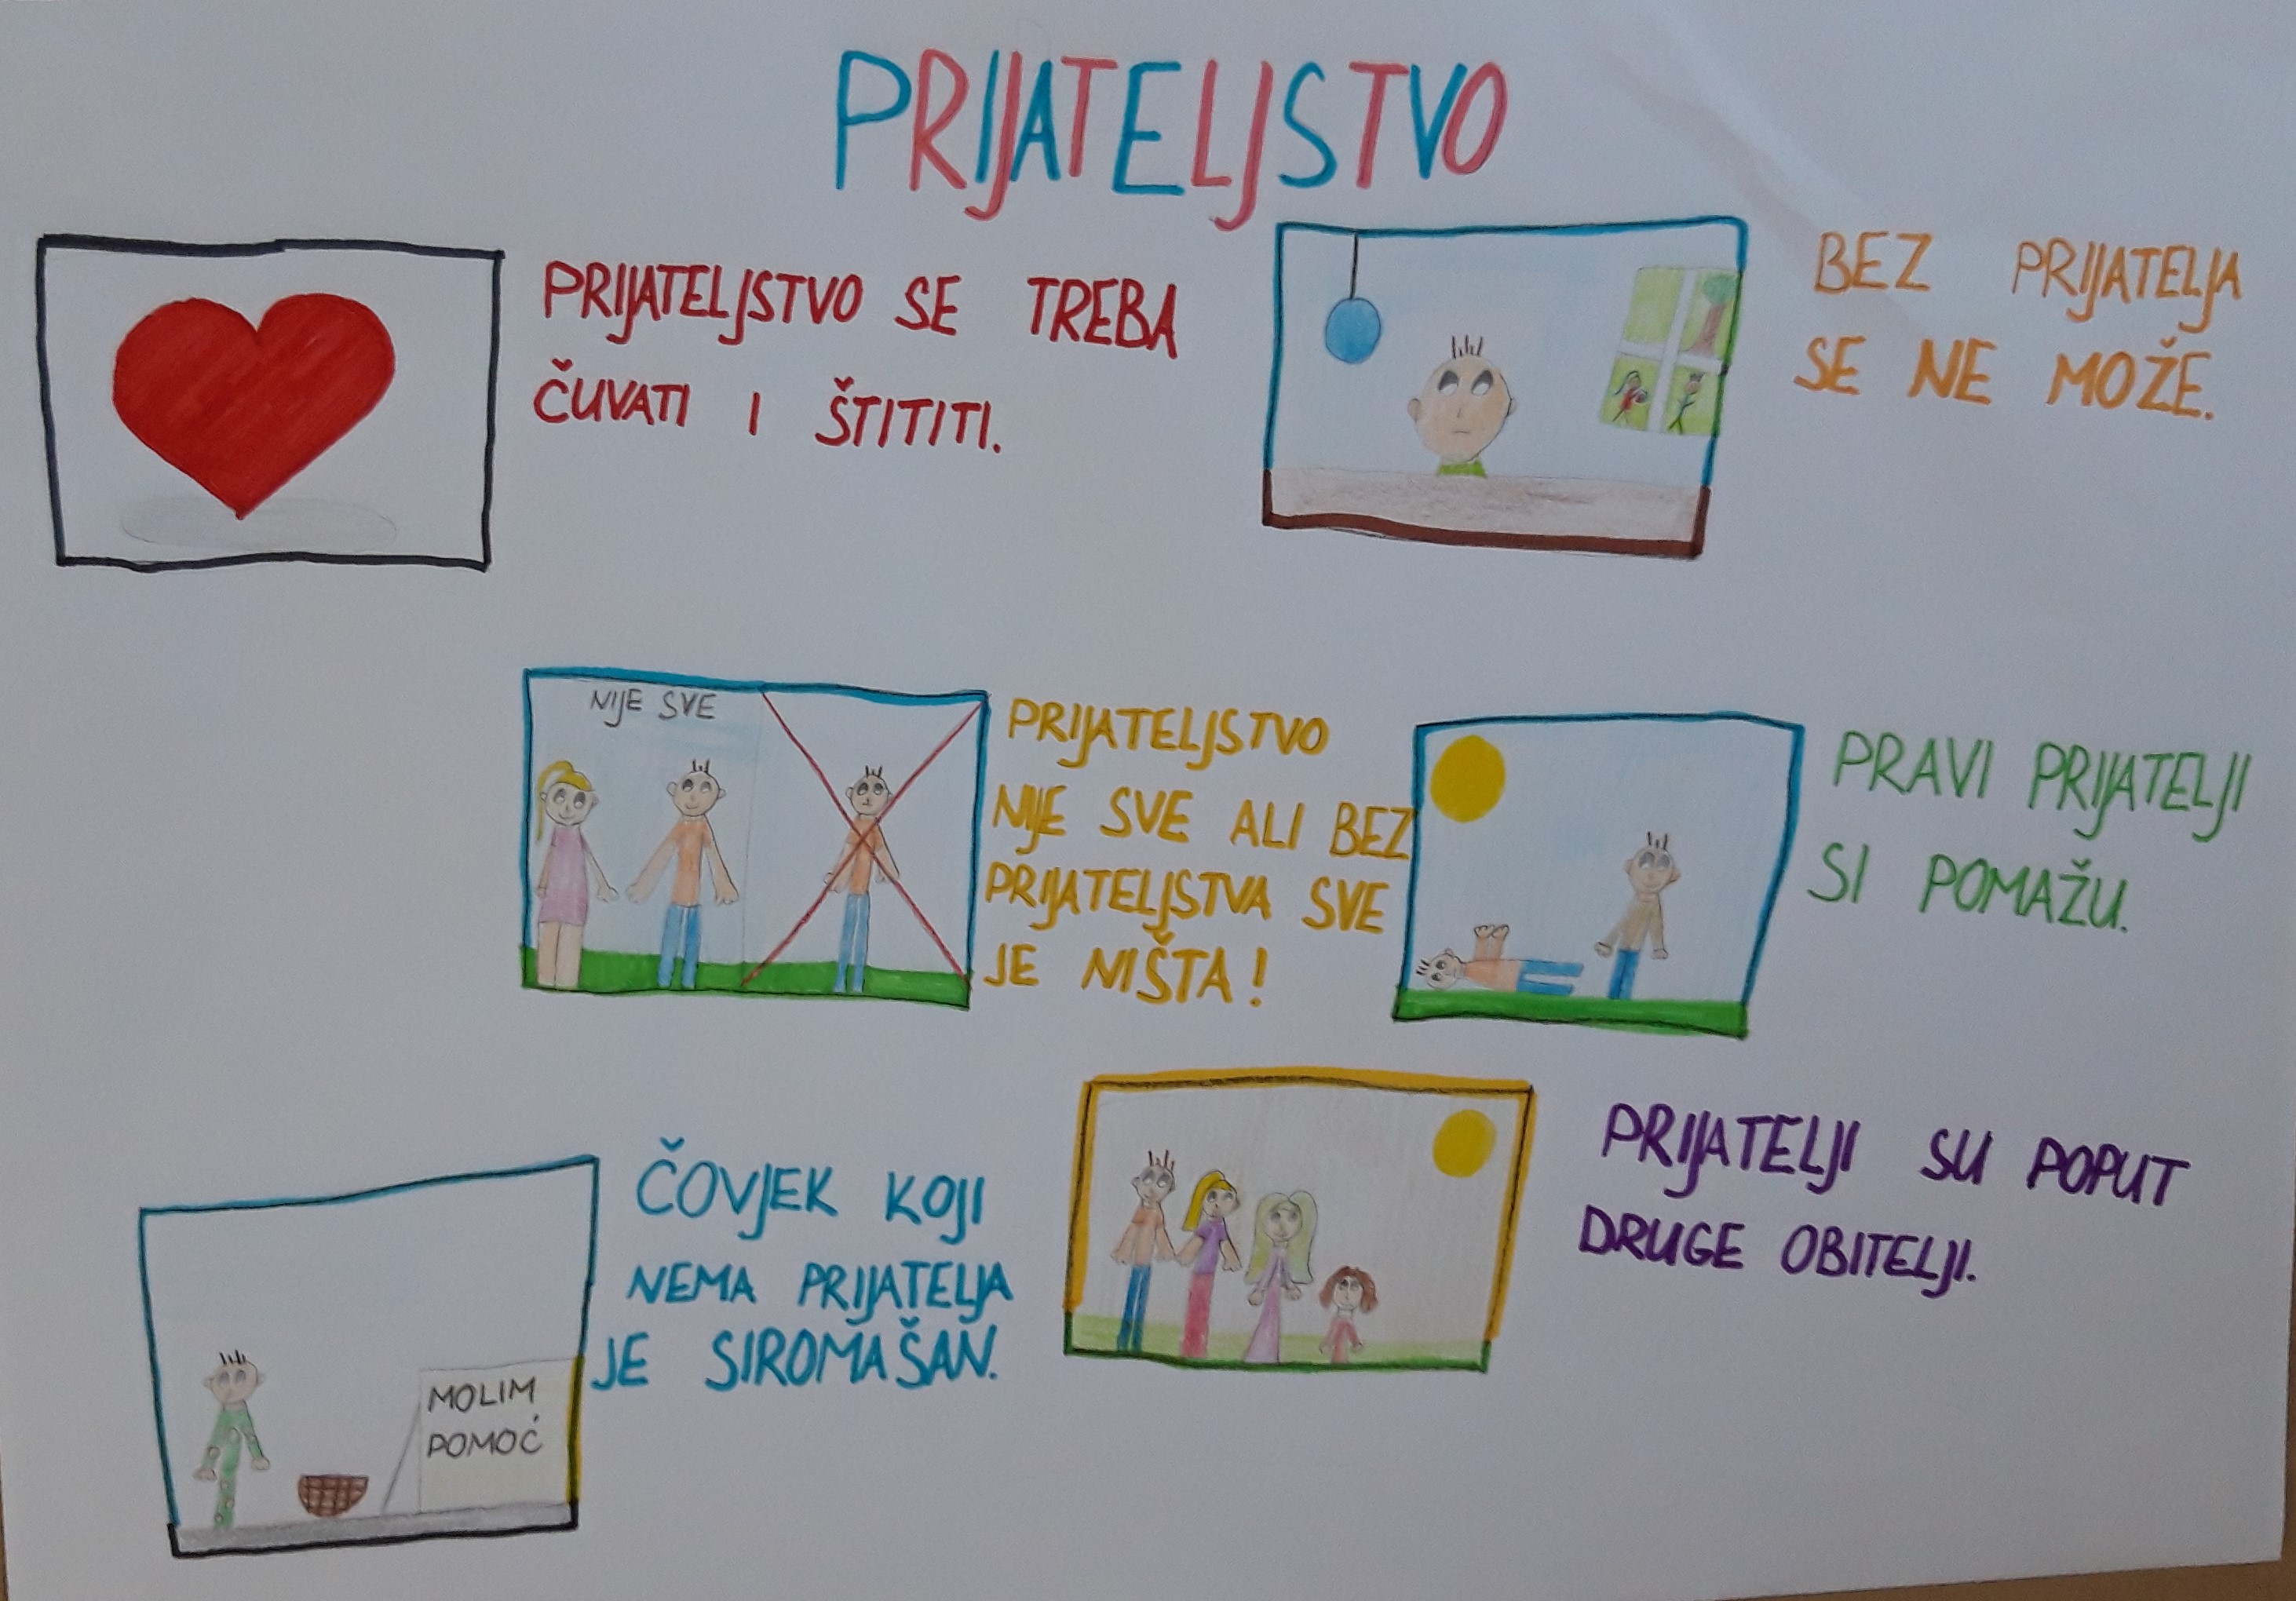 PRIJATELJSTVO
PRIJATELJSTVO SE TREBA
ČUVATI I ŠTITITI.
BEZ PRIJATELJA
SE NE MOŽE.
NIJE SVE
PRIJATELJSTVO
NIJE SVE ALI BEZ
PRIJATELJSTVA SVE
JE NIŠTA!
PRAVI PRIJATELJI
SI POMAŽU.
ČOVJEK KOJI
NEMA PRIJATELJA
JE SIROMAŠAN.
MOLIM
POMOĆ
PRIJATELJI SU POPUT
DRUGE OBITELJI.